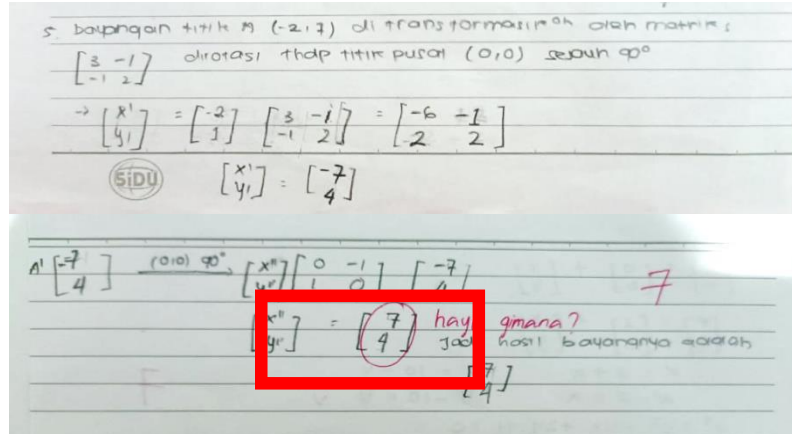 5. bayangan titik A (-2,7) di transformasikan oleh matriks
[3 -1 / -1 2] dirotasi thdp titik pusat (0,0) sejauh 90°
→ [x' / y'] = [-2 / 1] [3 -1 / -1 2] = [-6 -1 / 2 2]
SiDU [x' / y'] = [-7 / 4]
A' [-7 / 4] (0,0) 90° [x" / y"] [0 -1 / 1 0] [-7 / 4] 7
[x" / y"] = [7 / 4] hayo gimana?
Jadi hasil bayangnya adalah
[7 / 4]